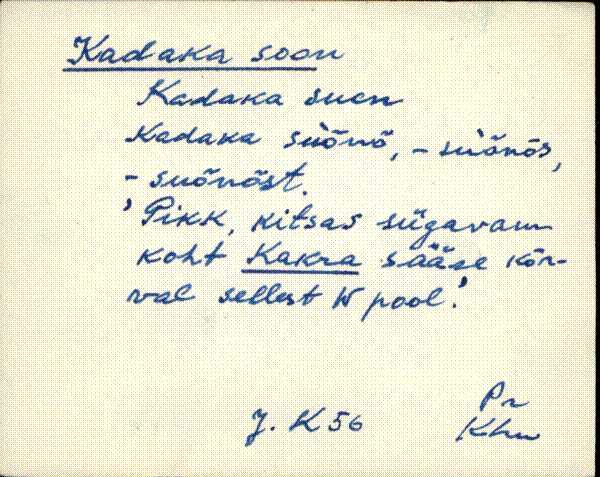 Kadaka soon
Kadaka suen
Kadaka suònȯ, – suònȯs,
– suȯnȯst.
'Pikk, kitsas sügavam
koht Kakra sääse kõr-
val sellest W pool.'
J. K 56
Pr
Khn